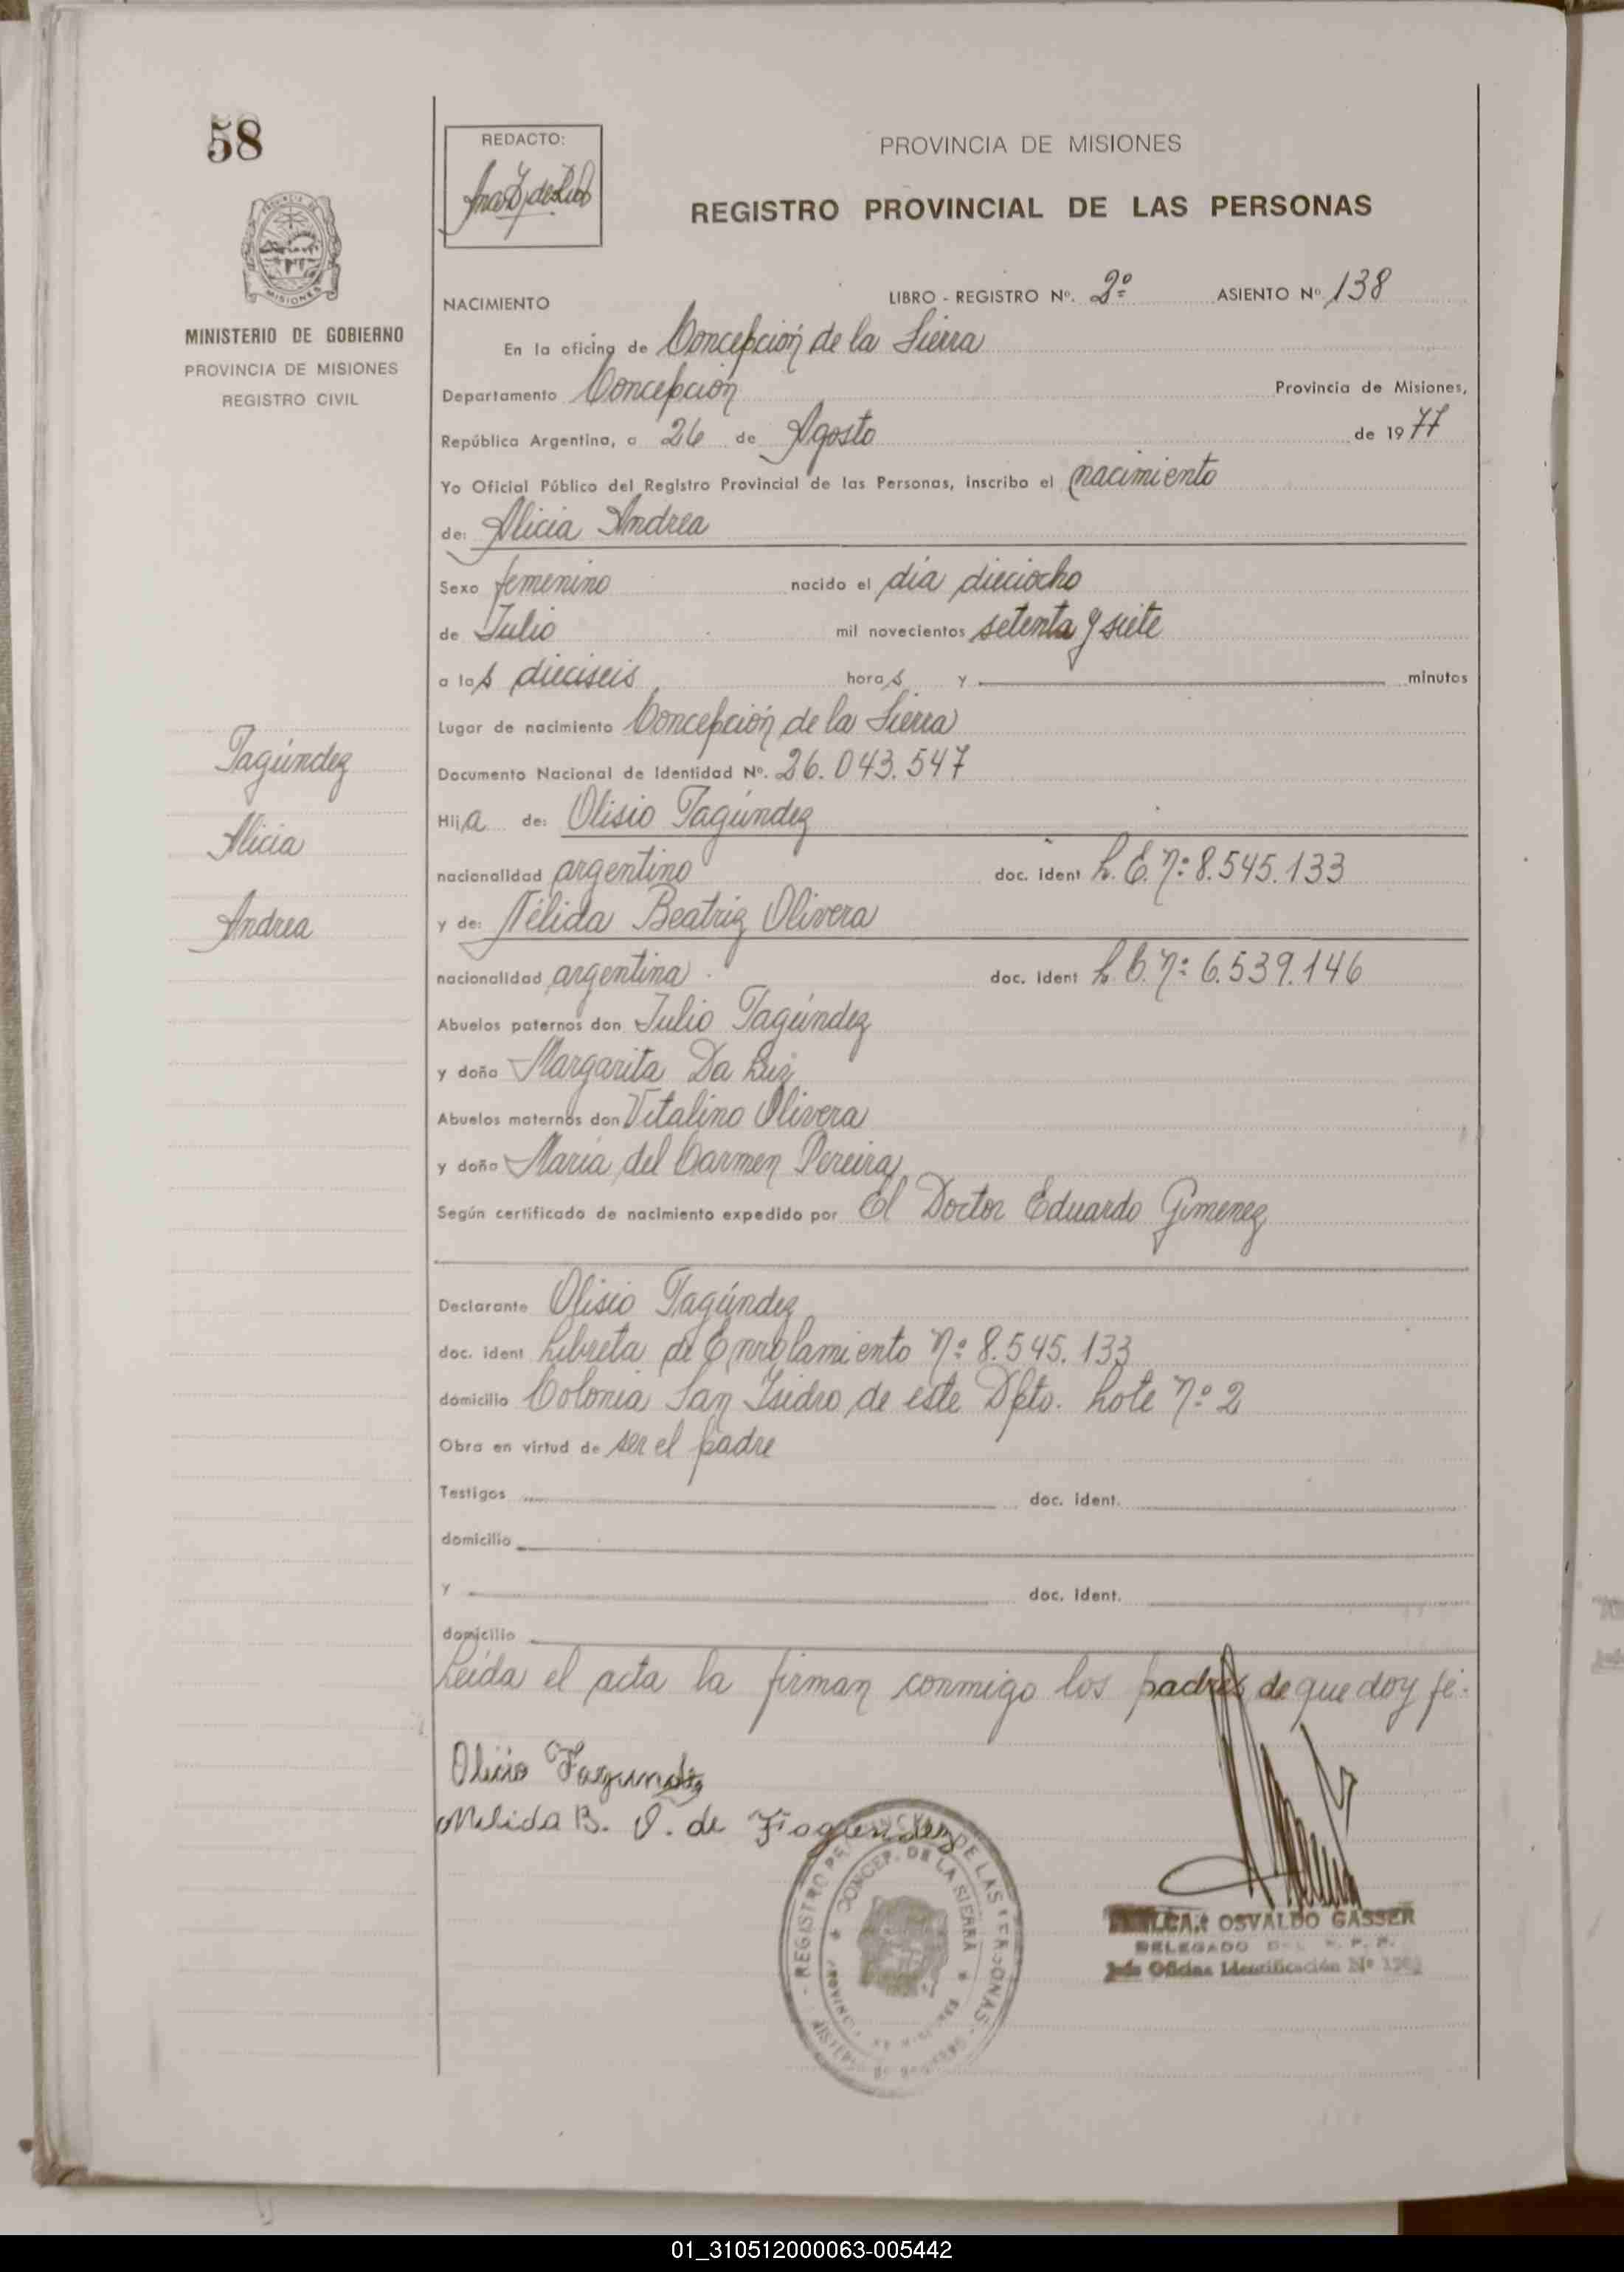 58
REDACTO:
PROVINCIA DE MISIONES
REGISTRO PROVINCIAL DE LAS PERSONAS
MISIONES
MINISTERIO DE GOBIERNO
PROVINCIA DE MISIONES
REGISTRO CIVIL
NACIMIENTO LIBRO - REGISTRO Nº. 2º ASIENTO Nº 138
En la oficina de Concepción de la Sierra
Departamento Concepción Provincia de Misiones,
República Argentina, a 26 de Agosto de 1977
Yo Oficial Público del Registro Provincial de las Personas, inscribo el nacimiento
de: Alicia Andrea
Sexo femenino nacido el día dieciocho
de Julio mil novecientos setenta y siete
a las dieciseis horas y minutos
Lugar de nacimiento Concepción de la Sierra
Documento Nacional de Identidad Nº. 26.043.547
Fagúndez
Alicia
Andrea
Hija de: Olisio Fagúndez
nacionalidad argentino doc. ident L.E.Nº 8.545.133
y de: Nélida Beatriz Olivera
nacionalidad argentina. doc. ident L.C.Nº 6.539.146
Abuelos paternos don Julio Fagúndez
y doña Margarita Da Luz
Abuelos maternos don Vitalino Olivera
y doña María del Carmen Pereira
Según certificado de nacimiento expedido por El Doctor Eduardo Gimenez
Declarante Olisio Fagúndez
doc. ident Libreta de Enrolamiento Nº 8.545.133
domicilio Colonia San Isidro de este Dpto. Lote Nº 2
Obra en virtud de ser el padre
Testigos doc. ident.
domicilio
y doc. ident.
domicilio
Leída el acta la firman conmigo los padres de que doy fé.
Olisio Fagundez
Nelida B. O. de Fagundez
REGISTRO PROVINCIAL DE LAS PERSONAS
CONCEP. DE LA SIERRA
PROVINCIA DE MISIONES
OSVALDO GASSER
DELEGADO
Jefe Oficina Identificación Nº
01_310512000063-005442